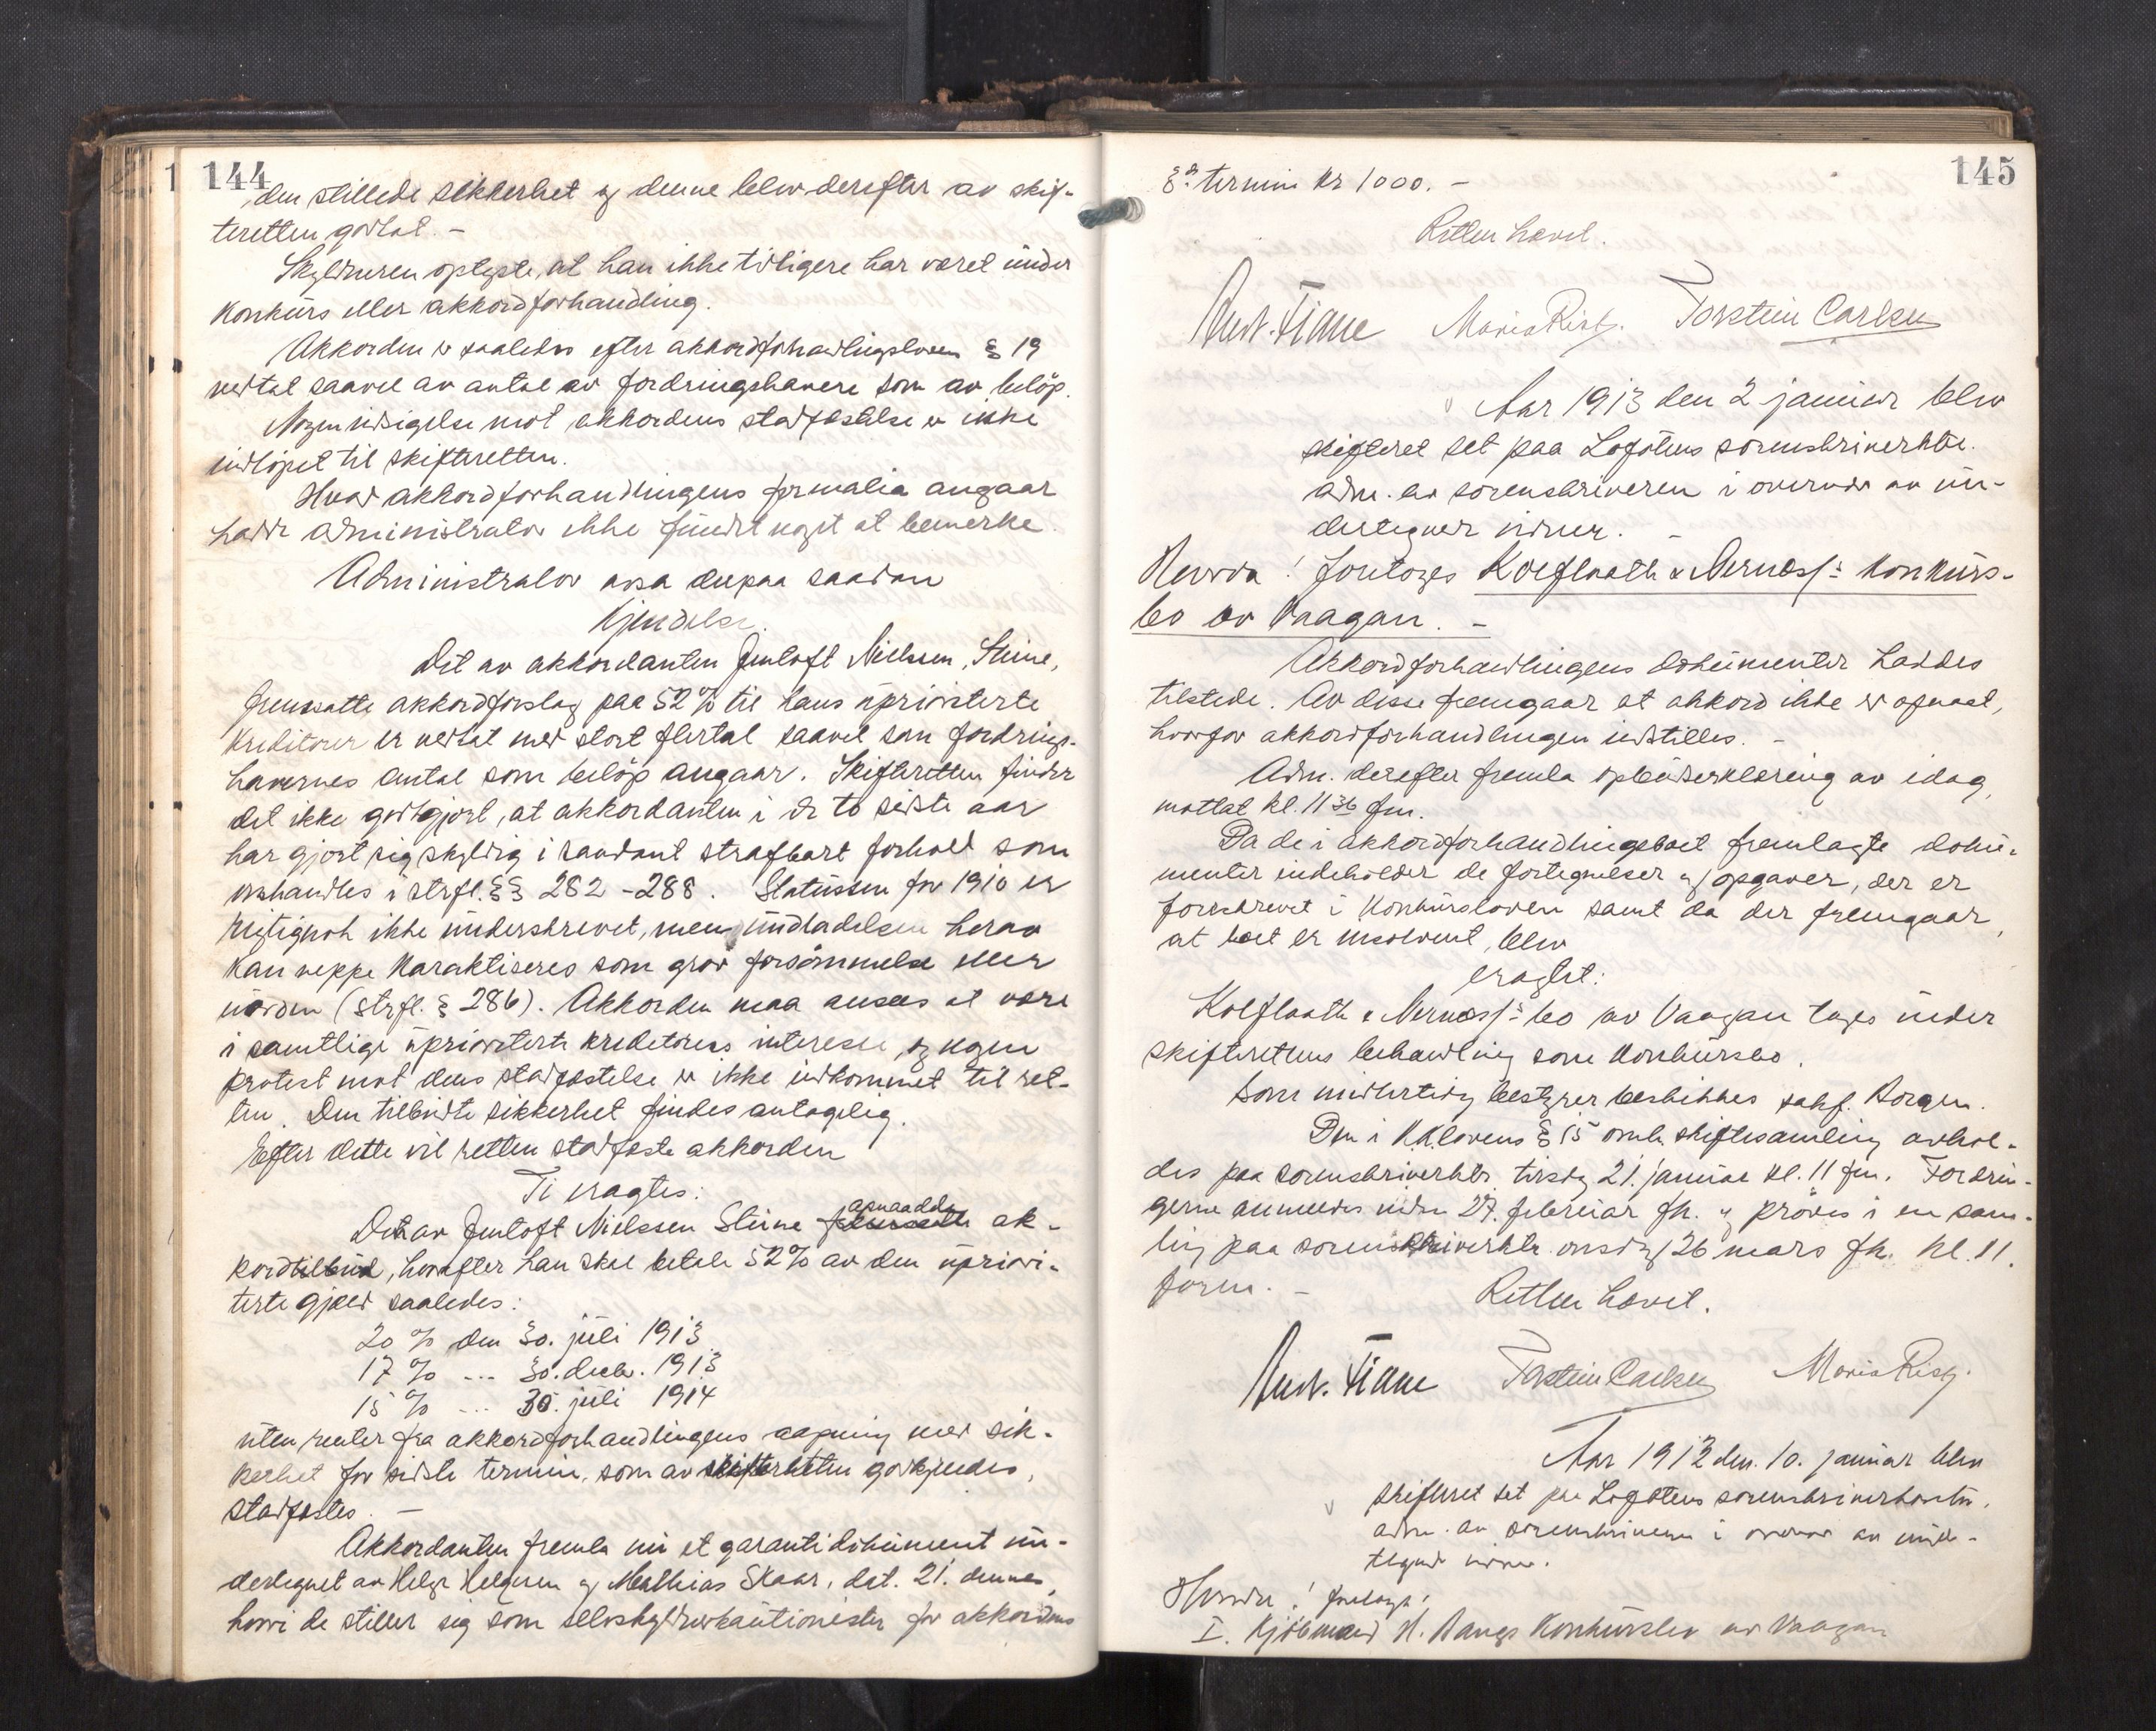 144
den stillede sikkerhet og denne blev derefter av skif-
teretten godtat. -
Skyldneren oplyste, at han ikke tidligere har været under
konkurs eller akkordforhandling.
Akkorden er saaledes efter akkordforhandlingsloven § 19
vedtat saavel av antal av fordringshavere som av beløp.
Nogen indsigelse mot akkordens stadfæstelse er ikke
indløpet til skifteretten.
Hvad akkordforhandlingens formalia angaar
hadde administrator ikke fundet noget at bemerke.
Administrator avsa derpaa saadan
Kjendelse.
Det av akkordanten Jentoft Nielsen, Steine,
fremsatte akkordforslag paa 52% til hans upriviterte
kreditorer er vedtat med stort flertal saavel som fordrings-
havernes antal som beløp angaar. Skifteretten finder
det ikke godtgjort, at akkordanten i de to sidste aar
har gjort sig skyldig i saadant strafbart forhold som
omhandles i strfl. §§ 282 - 288. Statussen for 1910 er
rigtignok ikke underskrevet, men undladelsen herav
kan neppe karaktiseres som grov forsømmelse eller
uorden (strfl. § 286). Akkorden maa ansees at være
i samtlige upriviterte kreditorers interesse, og nogen
protest mot dens stadfæstelse er ikke indkommet til ret-
ten. Den tilbudte sikkerhet findes antagelig.
Efter dette vil retten stadfæste akkorden
Ti eragtes:
Den av Jentoft Nielssen Steine fremsatte opnaadde ak-
kordtilbud, hvorefter han skal betale 52% av den uprivi-
terte gjæld saaledes:
20 % den 30. juli 1913
17 % ... 30. decbr. 1913
15 % ... 30. juli 1914
uten renter fra akkordforhandlingens aapning med sik-
kerhet for sidste termin, som av skifteretten godkjendes,
stadfæstes. -
Akkordanten fremla nu et garantidokument un-
dertegnet av Helge Helgesen og Mathias Skaar, dat. 21. dennes,
hvori de stiller sig som selvskyldnerkautionister for akkordens
145
termin kr 1000. -
Retten hævet.
Maria Risø. Torstein Carlsen
Aar 1913 den 2 januar blev
skifteret set paa Lofotens sorenskriverktr.
adm. av sorenskriveren i overvær av un-
dertegnede vidner. -
Hvorda! foretoges Kolflaath & Nernæss's konkurs-
bo av Vaagan. -
Akkordforhandlingens dokumenter haddes
tilstede. Av disse fremgaar at akkord ikke er opnaad,
hvorfor akkordforhandlingen indstilles. -
Adm. derefter fremla opbudserklæring av idag,
mottat kl. 11 36 fm.
Da de i akkordforhandlingsboet fremlagte doku-
menter indeholder de fortegnelser og opgaver, der er
foreskrevet i konkursloven samt da der fremgaar,
at boet er insolvent, blev
eragtet:
Kolflaath & Nernæss's bo av Vaagan tages under
skifterettens behandling som konkursbo.
Som midlertidig bestyrer beskikkes sakf. Borgen.
Den i KKlovens § 15 omh. skiftesamling avhol-
des paa sorenskriverktr. tirsdag 21. januar kl. 11 fm. Fordrin-
gerne anmeldes inden 27. februar fk. og prøves i en sam-
ling paa sorenskriverktr. onsdag 26 mars fk. kl. 11.
form. - Retten hævet.
Torstein Carlsen Maria Risø.
Aar 1913 den 10. januar blev
skifteret set paa Lofotens sorenskriverkontor.
adm. av sorenskriveren i overvær av under-
tegnede vidner.
Hvorda! foretoges:
I. Kjøbmand H. Bangs konkursbo av Vaagan